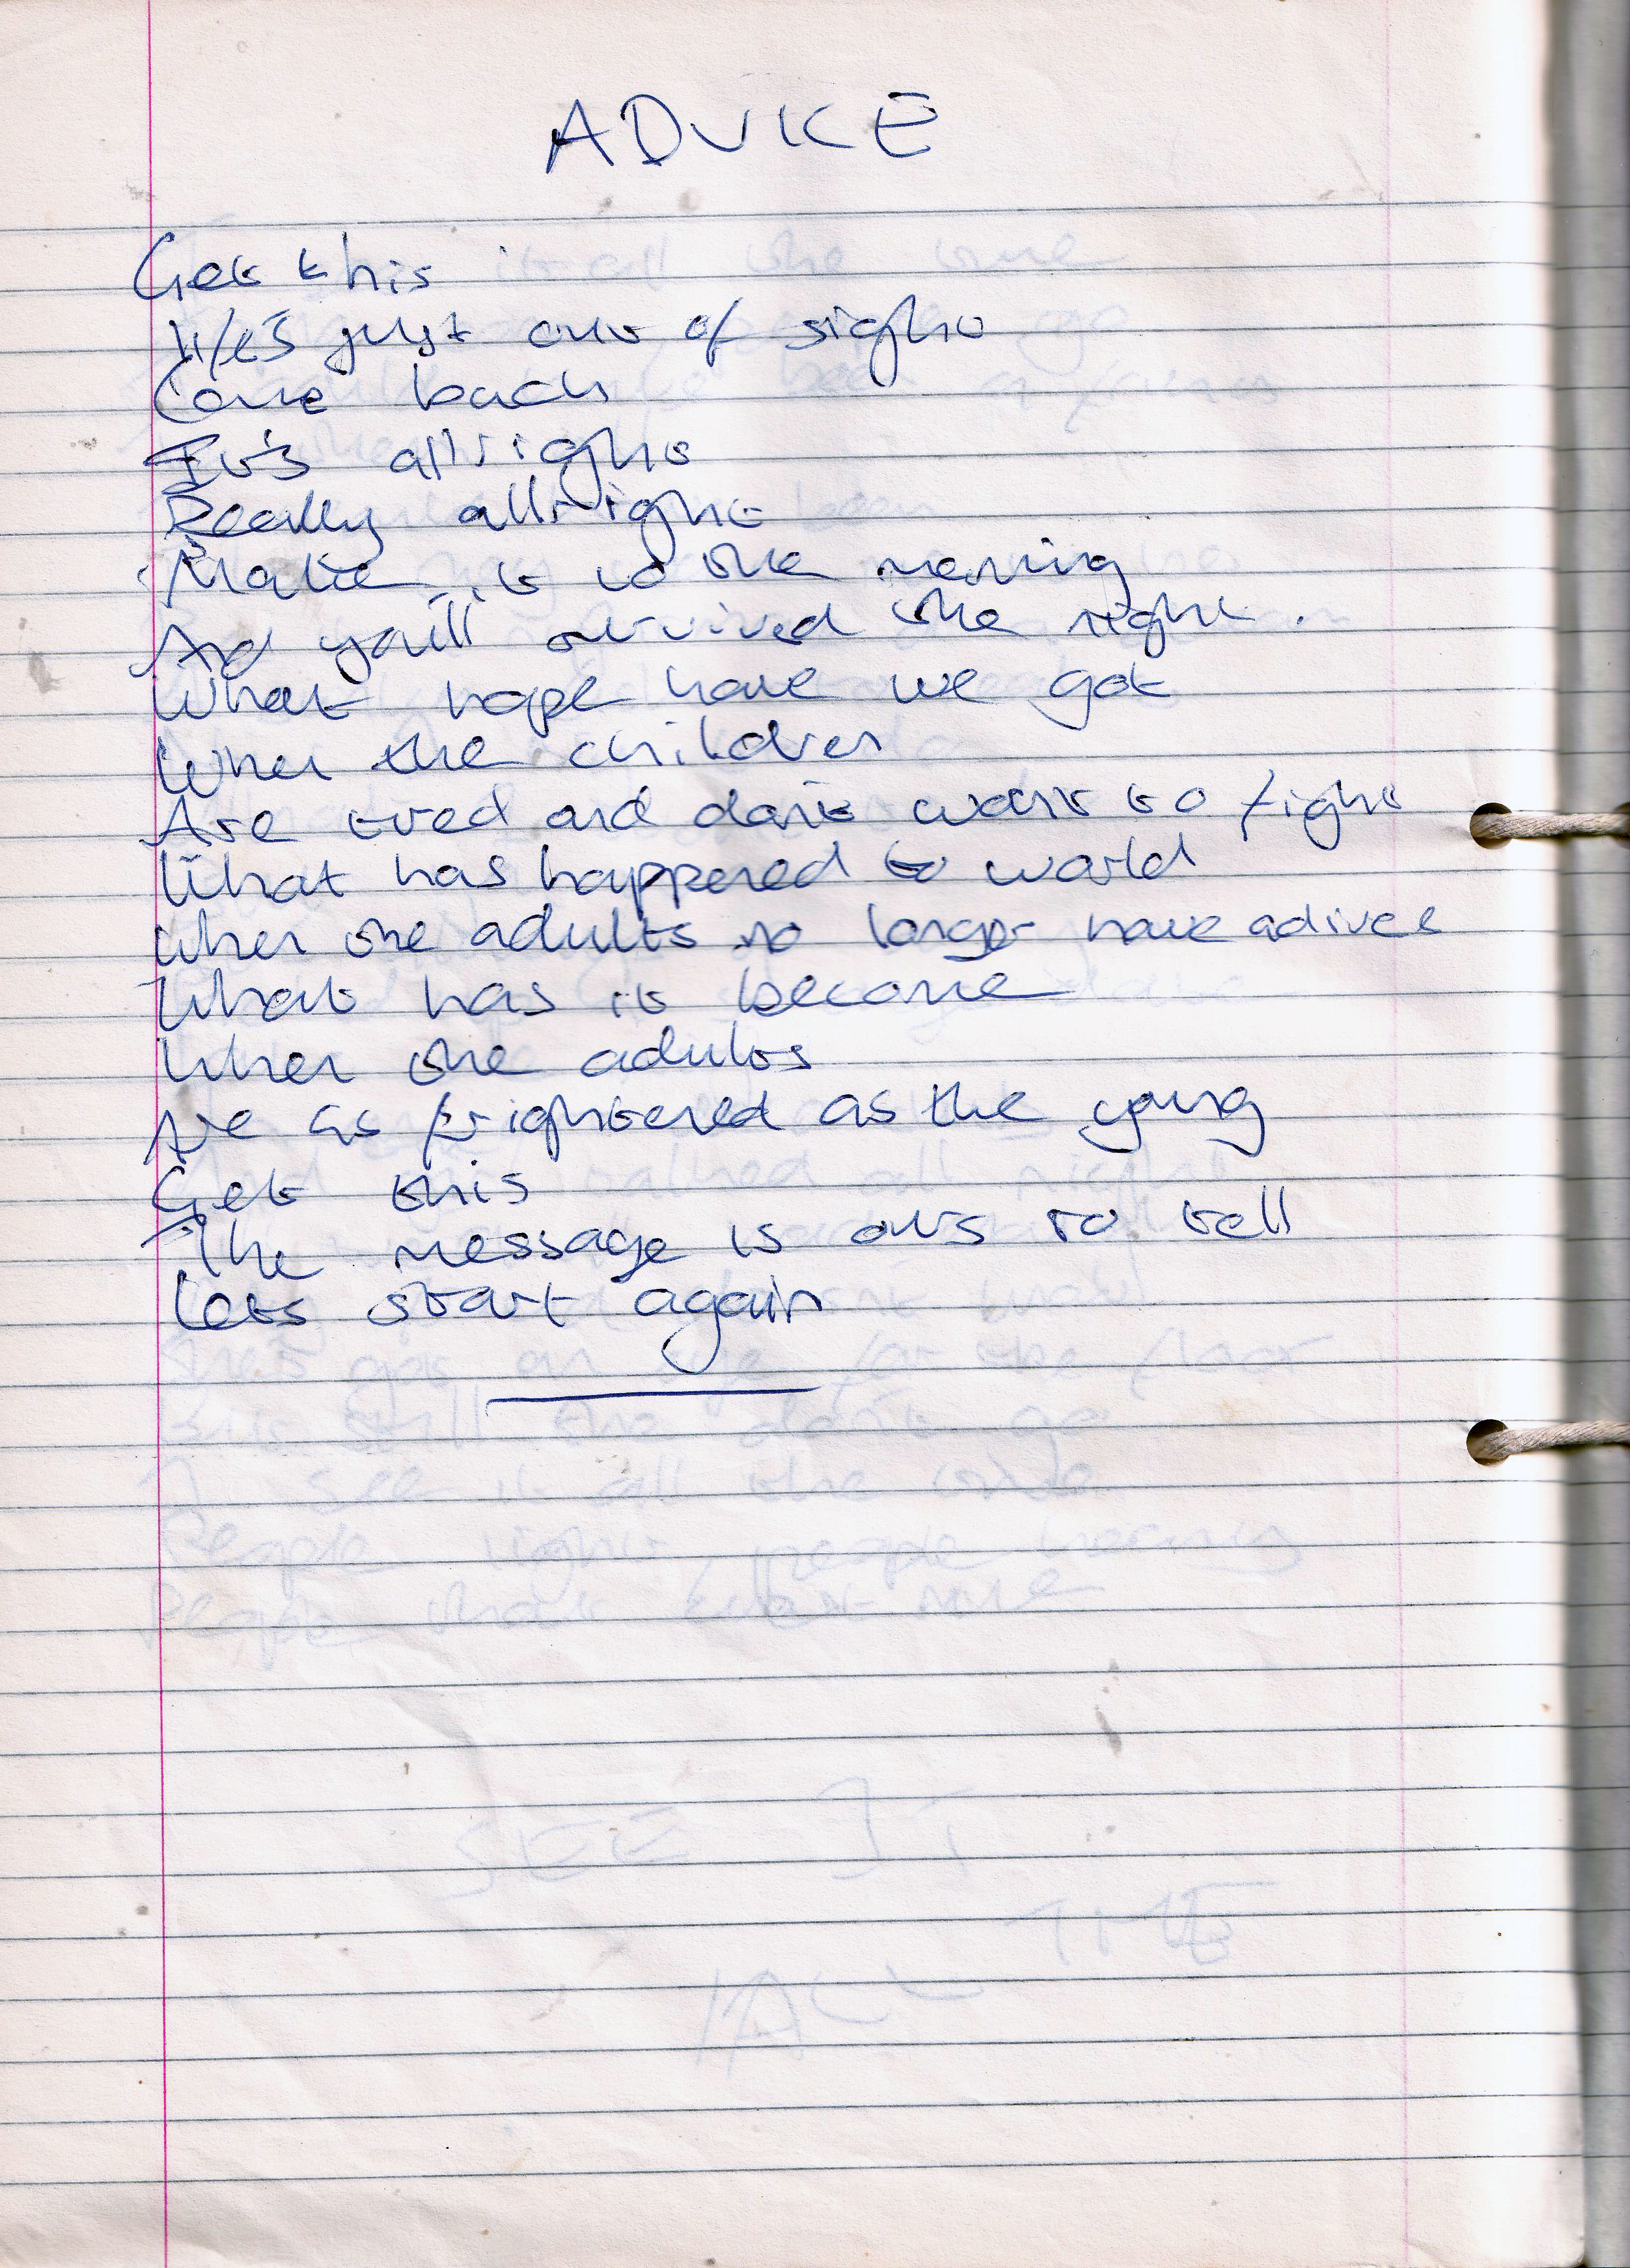 ADVICE
Get this
It's just out of sight
Come back
It's allright
Really allright
Make it to the morning
And you'll survived the night.
What hope have we got
When the children
Are tired and don't want to fight
What has happened to world
When the adults no longer have adivce
What has it become
When the adults
Are as frightened as the young
Get this
The message is ours to tell
Lets start again